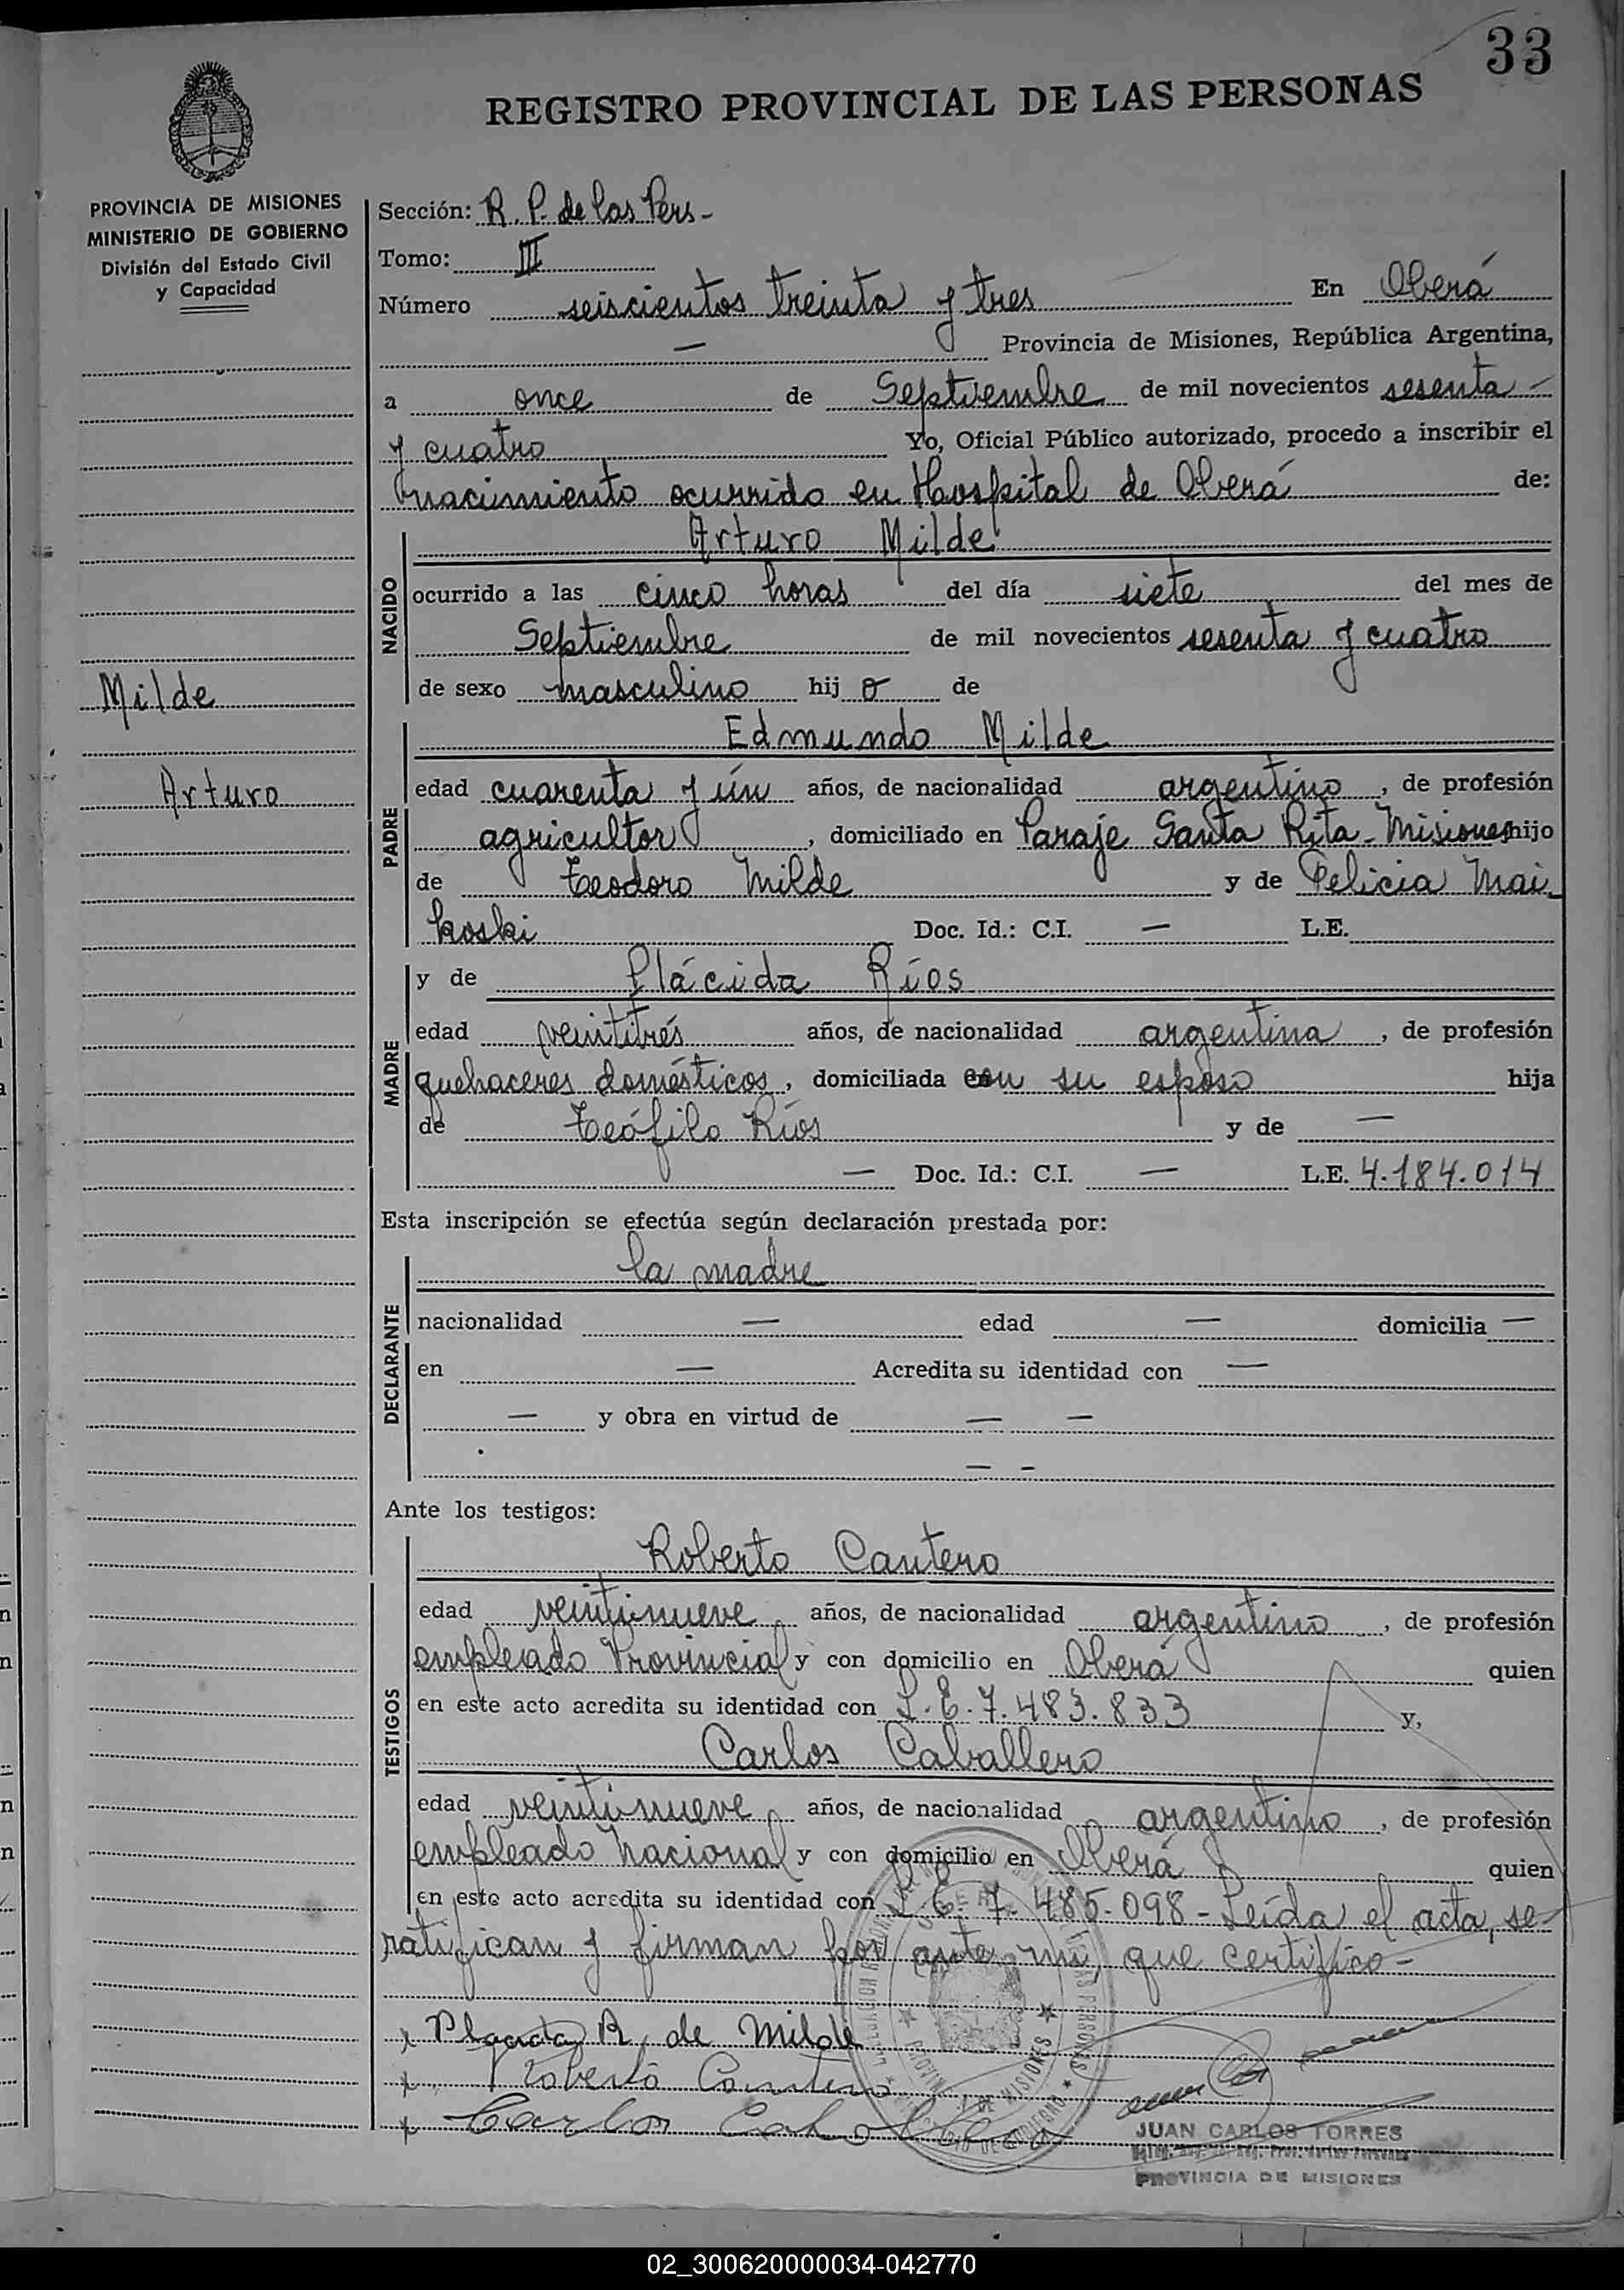 33
REGISTRO PROVINCIAL DE LAS PERSONAS
PROVINCIA DE MISIONES
MINISTERIO DE GOBIERNO
División del Estado Civil
y Capacidad
Milde
Arturo
Sección: R. P. de las Pers -
Tomo: III
Número seiscientos treinta y tres En Oberá
— Provincia de Misiones, República Argentina,
a once de Septiembre de mil novecientos sesenta -
y cuatro Yo, Oficial Público autorizado, procedo a inscribir el
nacimiento ocurrido en Hospital de Oberá de:
NACIDO
Arturo Milde
ocurrido a las cinco horas del día siete del mes de
Septiembre de mil novecientos sesenta y cuatro
de sexo masculino hij o de
PADRE
Edmundo Milde
edad cuarenta y ún años, de nacionalidad argentino, de profesión
agricultor, domiciliado en Paraje Santa Rita - Misiones hijo
de Teodoro Milde y de Felicia Mai-
koski Doc. Id.: C.I. — L.E.
MADRE
y de Plácida Ríos
edad veintitrés años, de nacionalidad argentina, de profesión
quehaceres domésticos, domiciliada con su esposo hija
de Teófilo Ríos y de —
— Doc. Id.: C.I. — L.E. 4.184.014
Esta inscripción se efectúa según declaración prestada por:
DECLARANTE
la madre
nacionalidad — edad — domicilia —
en — Acredita su identidad con —
— y obra en virtud de — —
— -
Ante los testigos:
TESTIGOS
Roberto Cantero
edad veintinueve años, de nacionalidad argentino, de profesión
empleado Provincial y con domicilio en Oberá quien
en este acto acredita su identidad con L.E. 7.483.833 y,
Carlos Caballero
edad veintinueve años, de nacionalidad argentino, de profesión
empleado Nacional y con domicilio en Oberá quien
en este acto acredita su identidad con L.E. 7.485.098 - Leída el acta, se
ratifican y firman por ante mi, que certifico -
x Placida R. de Milde
x Roberto Cantero
x Carlos Caballero
JUAN CARLOS TORRES
PROVINCIA DE MISIONES
02_300620000034-042770